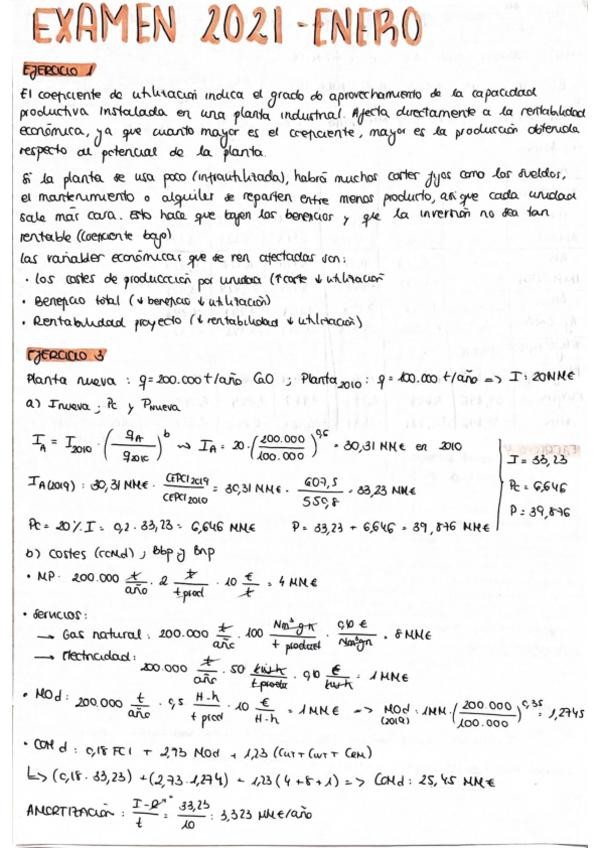 EXAMEN 2021 - ENERO
EJERCICIO 1
El coeficiente de utilización indica el grado de aprovechamiento de la capacidad
productiva instalada en una planta industrial. Afecta directamente a la rentabilidad
económica, ya que cuanto mayor es el coeficiente, mayor es la producción obtenida
respecto al potencial de la planta.
Si la planta se usa poco (infrautilizada), habrá muchos costes fijos como los sueldos,
el mantenimiento o alquileres se reparten entre menos producto, así que cada unidad
sale más cara. Esto hace que bajen los beneficios y que la inversión no sea tan
rentable (coeficiente bajo)
Las variables económicas que se ven afectadas son:
· Los costes de producción por unidad (↑coste ↓ utilización
· Beneficio total (↓ beneficio ↓ utilización)
· Rentabilidad proyecto (↓ rentabilidad ↓ utilización)
EJERCICIO 3
Planta nueva : q = 200.000 t/año CaO ; Planta 2010 : q = 100.000 t/año => I : 20MM€
a) Inueva ; Pc y Pnueva
I_A = I_2010 · (q_A / q_2010)^b ⇝ I_A = 20 · (200.000 / 100.000)^0,6 = 30,31 MM€ en 2010
I_A(2019) : 30,31 MM€ · CEPCI 2019 / CEPCI 2010 = 30,31 MM€ · 607,5 / 550,8 = 33,23 MM€
I = 33,23
Pc = 6,646
P = 39,876
Pc = 20% I = 0,2 · 33,23 = 6,646 MM€ P = 33,23 + 6,646 = 39,876 MM€
b) Costes (COMd) ; Bbp y Bnp
· MP · 200.000 t/año · 2 t/t prod · 10 €/t = 4 MM€
· Servicios:
→ Gas natural : 200.000 t/año · 100 Nm³ gn/t product · 0,10 €/Nm³gn = 8 MM€
→ Electricidad: 200.000 t/año · 50 kW·h/t producto · 0,10 €/kW·h = 1 MM€
· MOd : 200.000 t/año · 0,5 H·h/t prod · 10 €/H·h = 1 MM€ => MOd (2019) : 1MM · (200.000 / 100.000)^0,35 = 1,2745
· COM d : 0,18 FCI + 2,73 MOd + 1,23 (CUT + CWT + CRM)
↳ (0,18 · 33,23) + (2,73 · 1,274) + 1,23 (4+8+1) => COMd : 25,45 MM€
AMORTIZACIÓN : I-R / t = 33,23 / 10 : 3,323 MM€/año